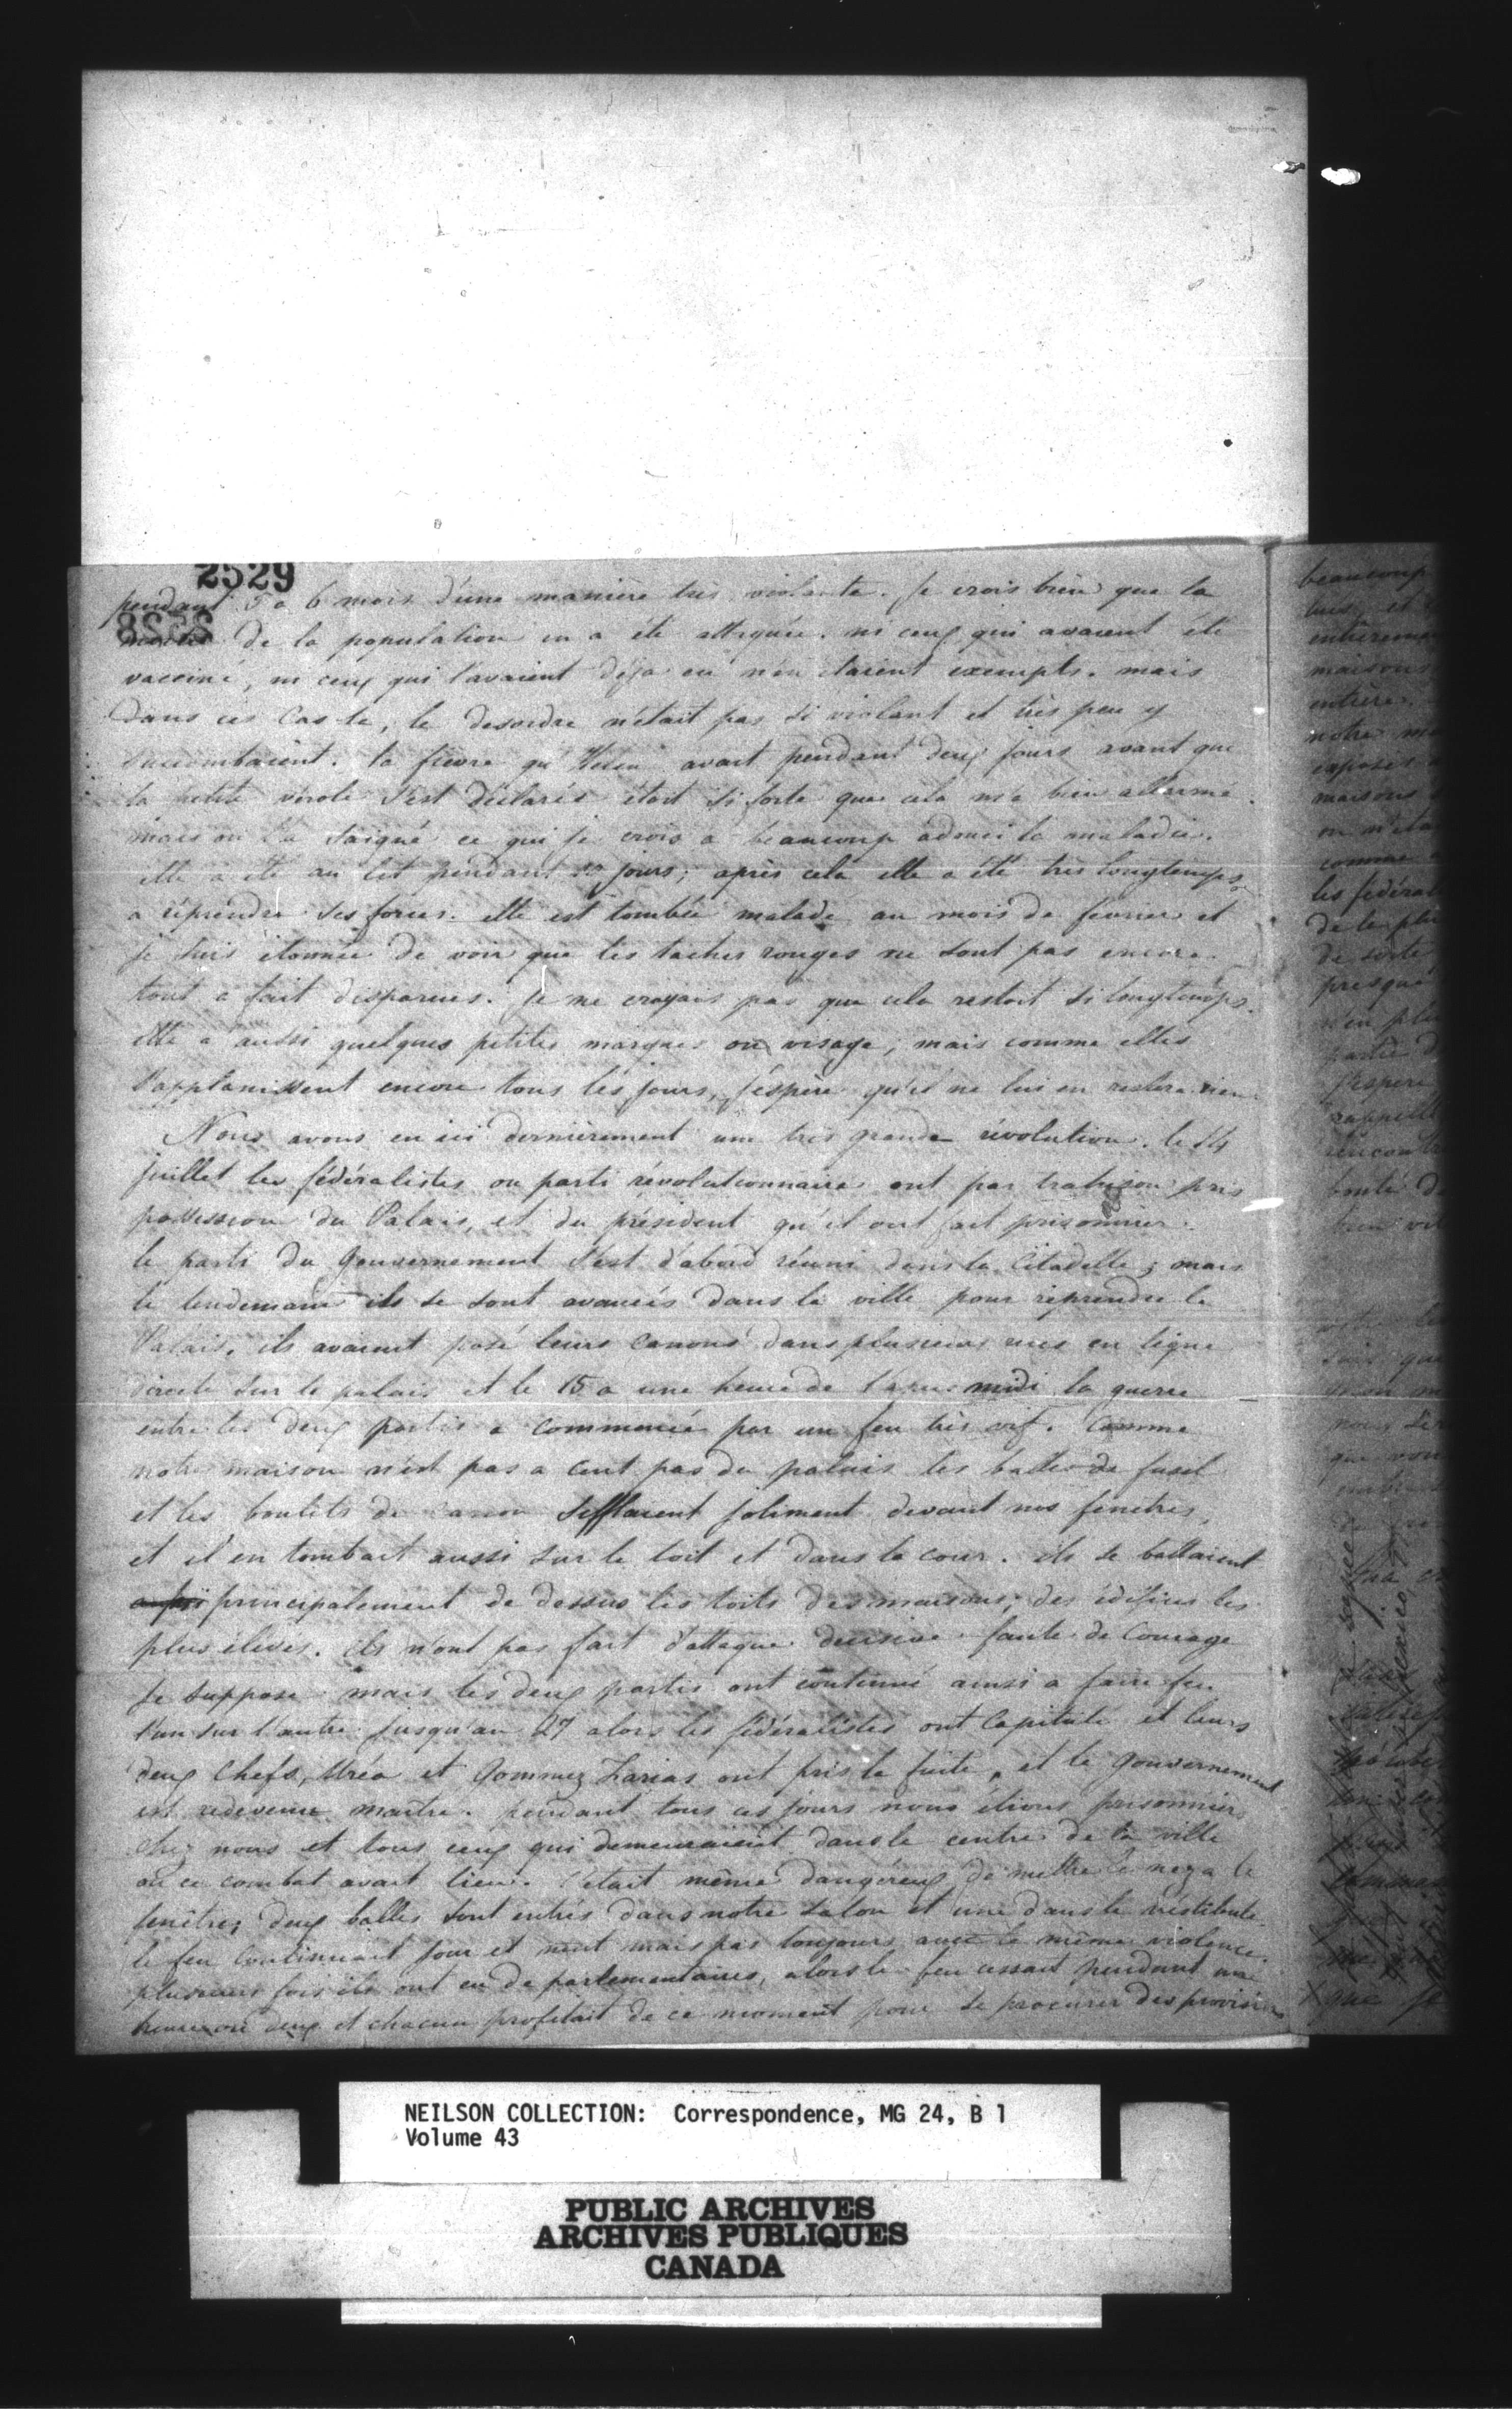 2529
pendant 5 a 6 mois d'une manière très violente. Je crois bien que la
8252
moitié de la population en a été attaquée. ni ceux qui avaient été
vacciné, ni ceux qui l'avaient déja eu n'en étaient exempts. mais
dans ces cas la, le desordre n'était pas si violant et très peu y
succombaient. la fievre qu' avait pendant deux jours avant que
la petite vérole s'est déclarée était si forte que cela m'a bien allarmé.
mais on l'a saigné ce qui je crois a beaucoup adouci la maladie.
elle a été au lit pendant jours; après cela elle a été très longtemps
a réprendre ses forces. elle est tombée malade au mois de fevrier et
je suis étonnée de voir que les taches rouges ne sont pas encore
tout a fait disparues. Je ne croyais pas que cela restait si longtemps.
elle a aussi quelques petites marques au visage; mais comme elles
s'applanissent encore tous les jours, j'éspère qu'il ne lui en restera rien.
Nous avons eu ici dernièrement une très grande révolution. le 14
juillet les fédéralistes ou parti révolutionnaire ont par trahison pris
possession du Palais, et du président qu'il ont fait prisonnier.
le parti du gouvernement s'est d'abord réuni dans la Citadelle; mais
le lendemain ils se sont avancés dans la ville pour réprendre le
Palais. ils avaient posé leurs canons dans plusieurs rues en ligne
directe sur le palais et le 15 a une heure de l'apres midi la guerre
entre les deux partis a commencée par un feu très vif. Comme
notre maison n'est pas a cent pas du palais les balles de fusil
et les boulets de canon sifflaient joliment devant nos fenetres,
et il en tombait aussi sur le toit et dans la cour. ils se battaient
principalement de dessus les toits des maisons, des édifices les
plus élevés. ils n'ont pas fait d'attaque decisive faute de Courage
je suppose mais les deux partis ont continué ainsi a faire feu
l'un sur l'autre jusqu'au 27 alors les fédéralistes ont Capitulé et leurs
deux Chefs, Uréa et Gommez Farias ont pris la fuite, et le gouvernement
est redevenu maître. pendant tous ces jours nous étions prisonniers
chez nous et tous ceux qui demeuraient dans le centre de la ville
où ce combat avait lieu. C'était même dangéreux de mettre le nez a la
fenêtre; deux balles sont entrés dans notre salon et une dans le vestibule.
le feu continuait jour et nuit mais pas toujours avec la même violence.
plusieurs fois ils ont eu de parlementaires, alors le feu cessait pendant une
heure ou deux et chacun profitait de ce moment pour se procurer des provisions
beaucoup
maisons
notre
maisons
comme
les fédéral
de sorte
presque
j'espere
bonté d
NEILSON COLLECTION: Correspondence, MG 24, B 1
Volume 43
PUBLIC ARCHIVES
ARCHIVES PUBLIQUES
CANADA